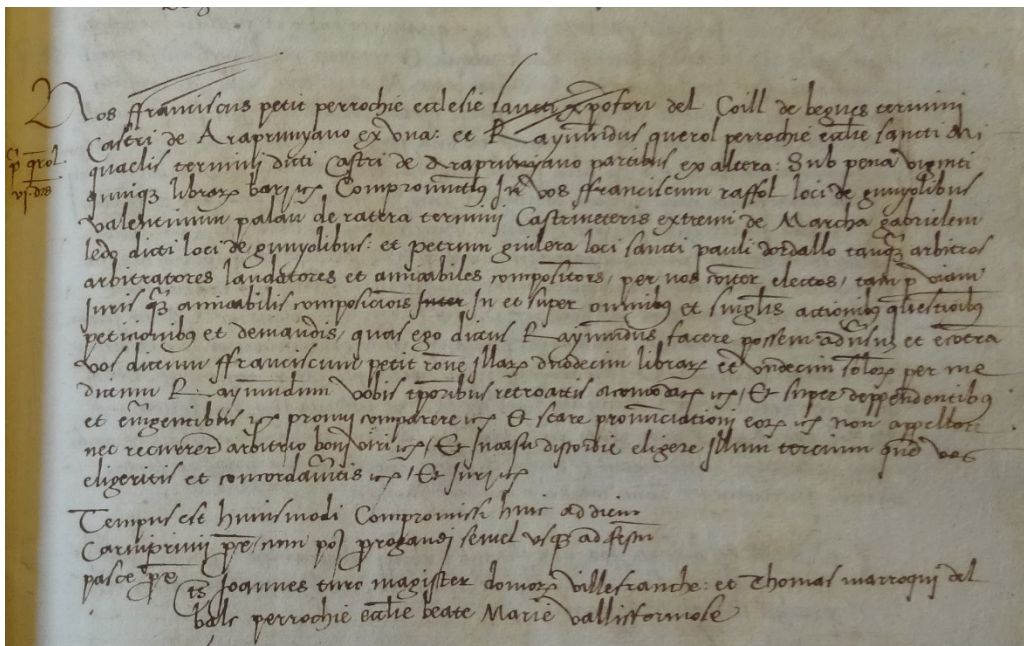 Nos ffranciscus petit perrochie ecclesie sancti xpofori del Coill de begues termini
Castri de Araprunyano ex vna: et Raymundus querol perrochie ecclie sancti Mi
quaelis termini dicti Castri de Araprunyano partibus ex altera: Sub pena viginti
quinqz librarz barz etc Compromittimus In vos ffranciscum raffol loci de gunyolibus
valentinum palau de ratera termini Castri veteris extremi de Marcha gabrielem
ledo dicti loci de gunyolibus: et petrum guilera loci sancti pauli dordallo tanqz arbitros
arbitratores laudatores et amicabiles compositores / per nos coiter electos / tam p viam
Iuris qz amicabilis composicionis Inter In et super omnibus et singlis actionibus questionibus
peticionibus et demandis / quas ego dictus Raymundus facere possem aduersus et econtra
vos dictum ffranciscum petit rone illarz duodecim librarz et vndecim solorz per me
dictum Raymundum vobis temporibus retroactis acomodatarz etc / Et super deppendentibus
et emergentibus etc promi comparere etc Et stare pronunciationi eorz etc non appellari
nec recurrere arbitrio boni viri etc / Et in casu discordie eligere Illum tercium quem vos
eligeritis et concordaueritis etc / Et Iuri etc
Tempus est huiusmodi Compromissi hinc ad diem
Carniprimii pxe / cum po prrogandi semel vsqz ad festum
pasce pxe
ts Joannes turo magister domorz villefranche: et Thomas marroqui del
balc perrochie ecclie beate Marie vallisformose
p qrol
vj ds